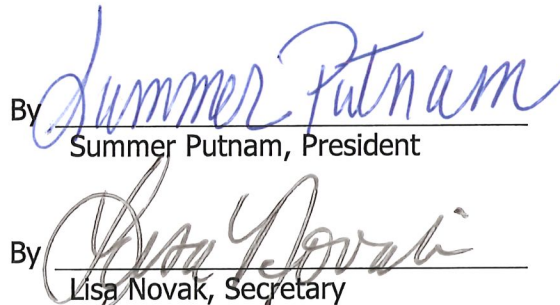 By Summer Putnam
Summer Putnam, President
By Lisa Novak
Lisa Novak, Secretary